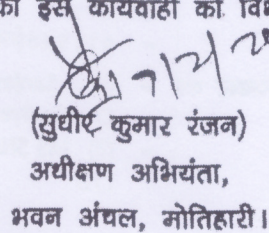 इस कार्यवाही की
(सुधीर कुमार रंजन)
अधीक्षण अभियंता,
भवन अंचल, मोतिहारी।